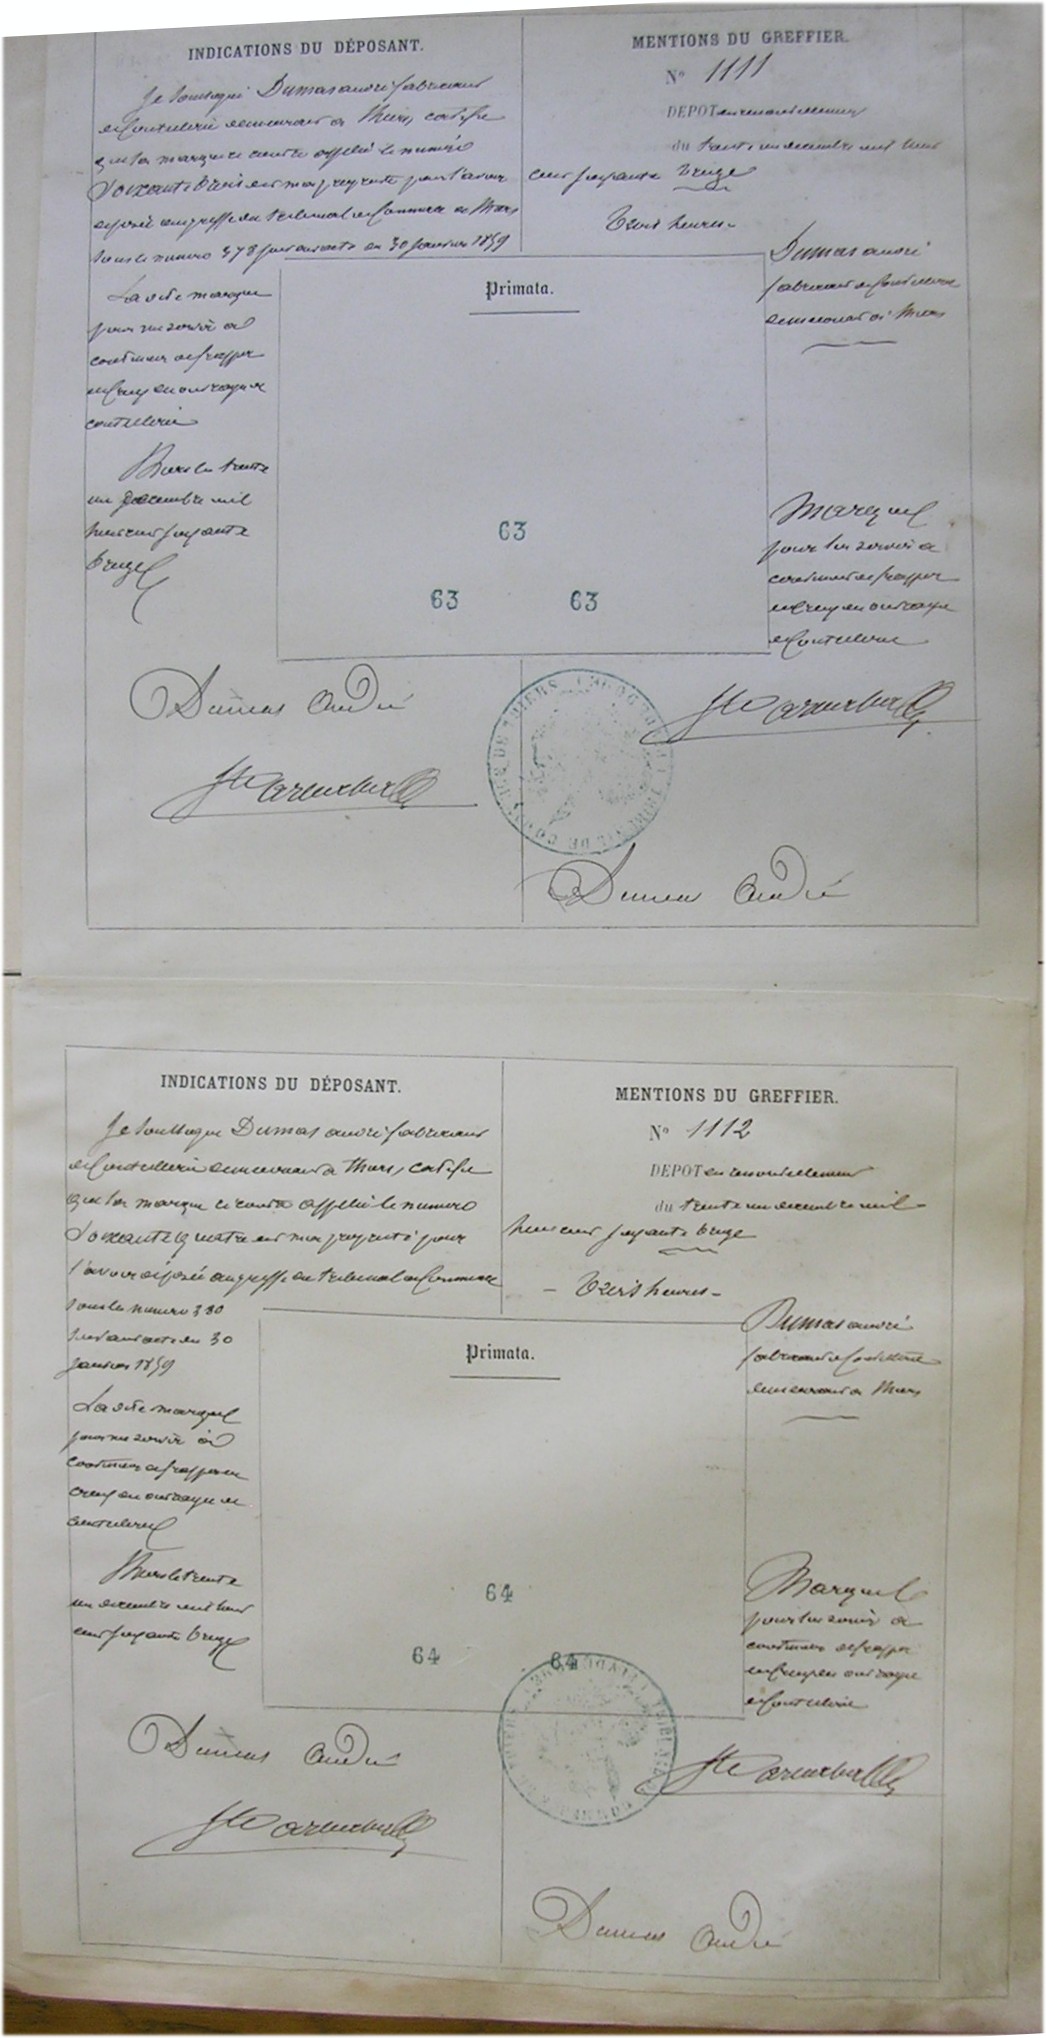 INDICATIONS DU DÉPOSANT.
Je soussigné Dumas andré fabricant
de Coutellerie demeurant à Thiers, certifie
que la marque ci contre appelée le numéro
Soixante trois est ma propriété pour l'avoir
déposée au greffe du tribunal de Commerce de Thiers
sous le numéro 378 suivant acte du 30 Janvier 1859
La dite marque
pour me servir à
continuer de frapper
en creux en ouvrage de
coutellerie
Thiers le trente
un décembre mil
huit cent soixante
treize
MENTIONS DU GREFFIER.
No 1111
DEPOT en renouvellement
du trente un décembre mil huit
cent soixante treize
Trois heures
Dumas andré
fabricant de Coutellerie
demeurant à Thiers
Primata.
63
63 63
Marque
pour lui servir à
continuer de frapper
en creux en ouvrage
de Coutellerie
Dumas André
Dumas André
INDICATIONS DU DÉPOSANT.
Je soussigné Dumas andré fabricant
de Coutellerie demeurant à Thiers, certifie
que la marque ci contre appelée le numéro
Soixante quatre est ma propriété pour
l'avoir déposée au greffe du tribunal de Commerce
sous le numéro 380
suivant acte du 30
Janvier 1859
La dite marque
pour me servir à
continuer de frapper en
creux en ouvrage de
coutellerie
Thiers le trente
un décembre mil huit
cent soixante treize
MENTIONS DU GREFFIER.
No 1112
DEPOT en renouvellement
du trente un décembre mil
huit cent soixante treize
- Trois heures -
Dumas andré
fabricant de Coutellerie
demeurant à Thiers
Primata.
64
64 64
Marque
pour lui servir à
continuer de frapper
en creux en ouvrage
de Coutellerie
Dumas André
Dumas André